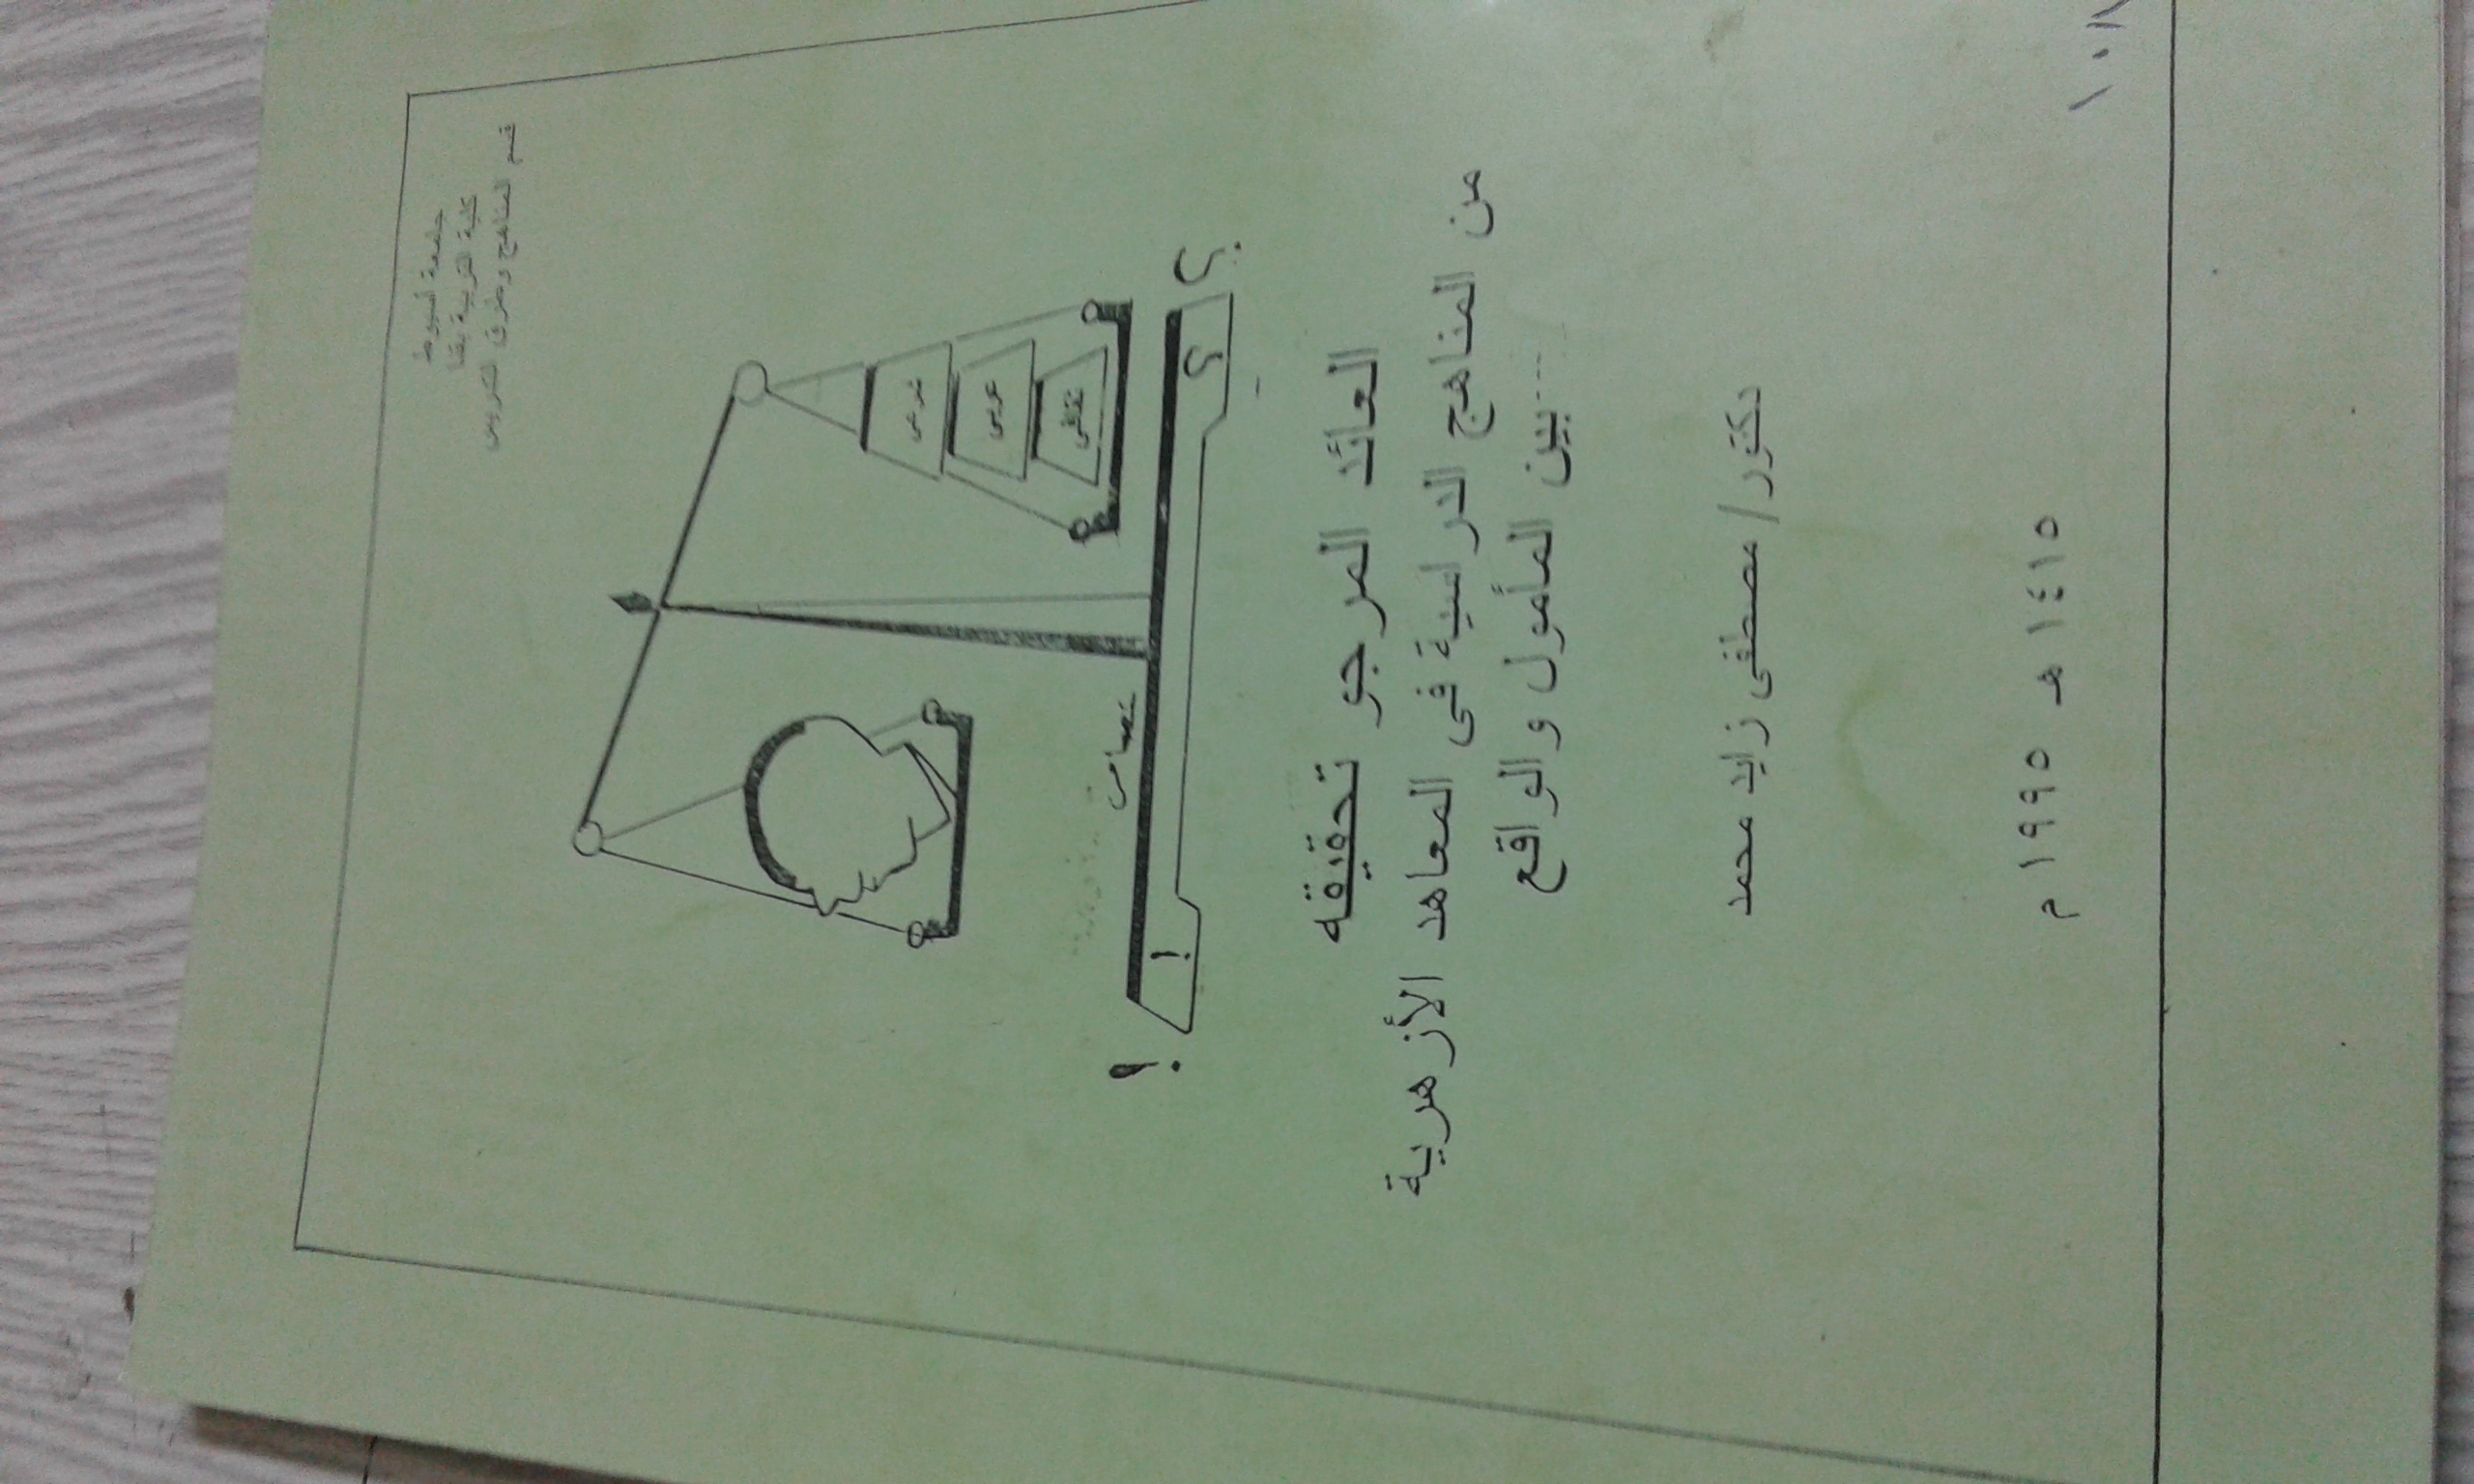 جامعة أسيوط
كلية التربية بقنا
قسم المناهج وطرق التدريس
شرعى
عربى
ثقافى
؟
؟
!
!
العائد المرجو تحقيقه
من المناهج الدراسية فى المعاهد الأزهرية
بين المأمول والواقع
دكتور/ مصطفى زايد محمد
١٤١٥ هـ ١٩٩٥ م